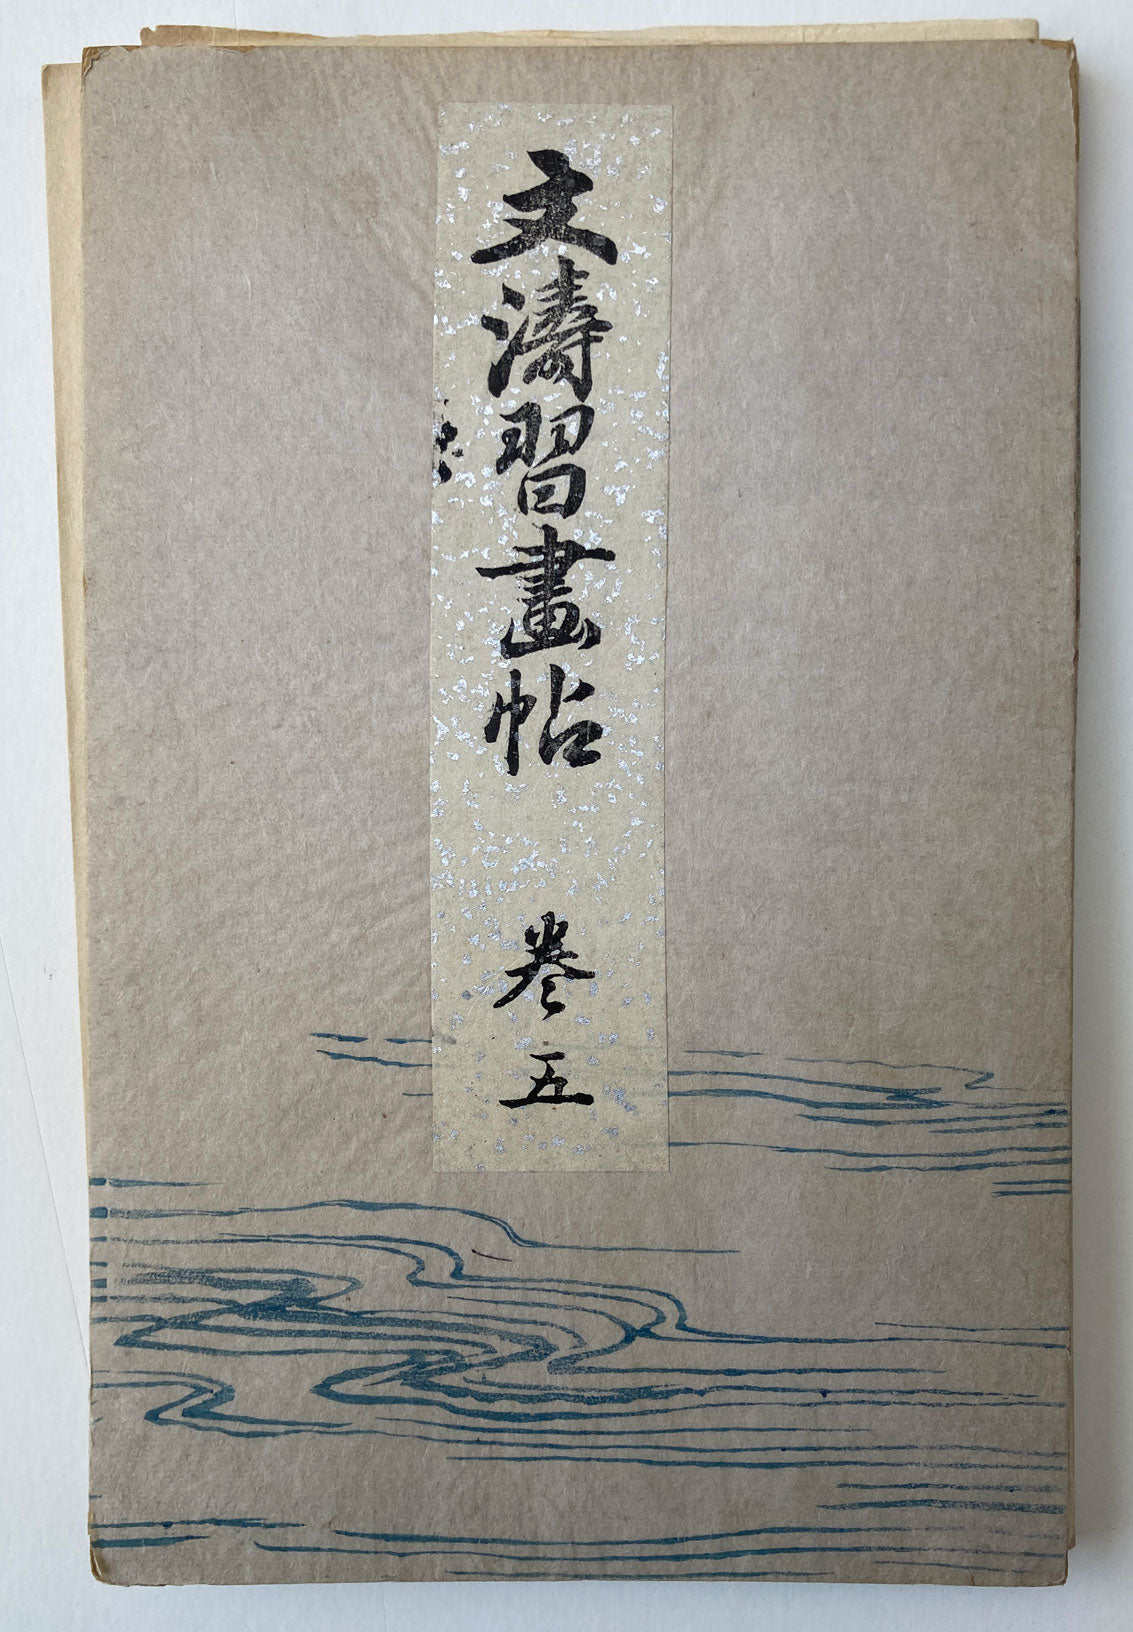 文濤習畫帖
卷五